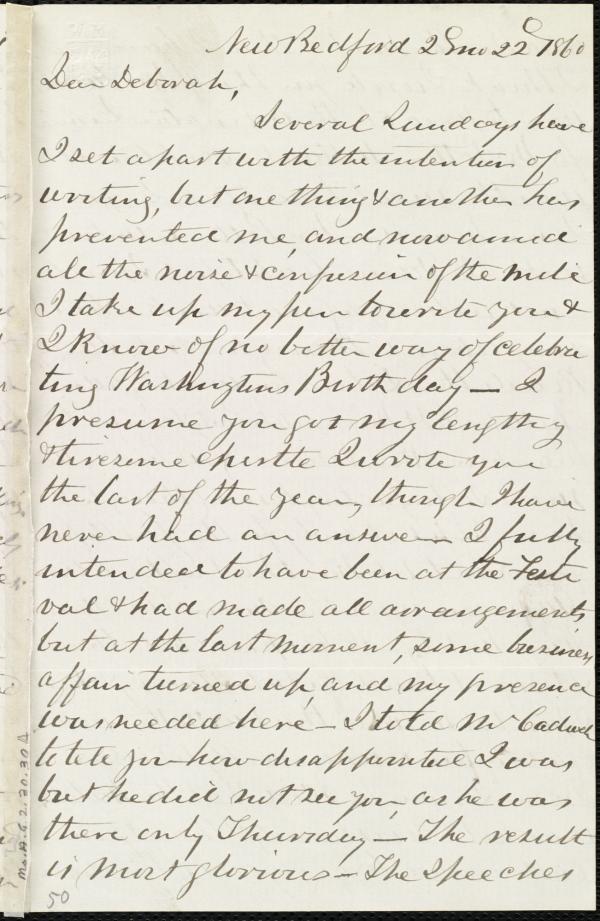 New Bedford 2nd mo 22d 1860
Dear Deborah,
Several Sundays have
I set apart with the intention of
writing, but one thing & another has
prevented me, and now amid
all the noise & confusion of the mill
I take up my pen to write you &
I know of no better way of celebra
ting Washingtons Birth day — I
presume you got my lengthy
& tiresome epistle I wrote you
the last of the year, though I have
never had an answer — I fully
intended to have been at the Festi
val & had made all arrangements
but at the last moment, some business
affair turned up, and my presence
was needed here — I told Mr
to tell you how disappointed I was
but he did not see you, as he was
there only Thursday — The result
is most glorious — The Speeches
Ms.A.9.2.30.30A
50